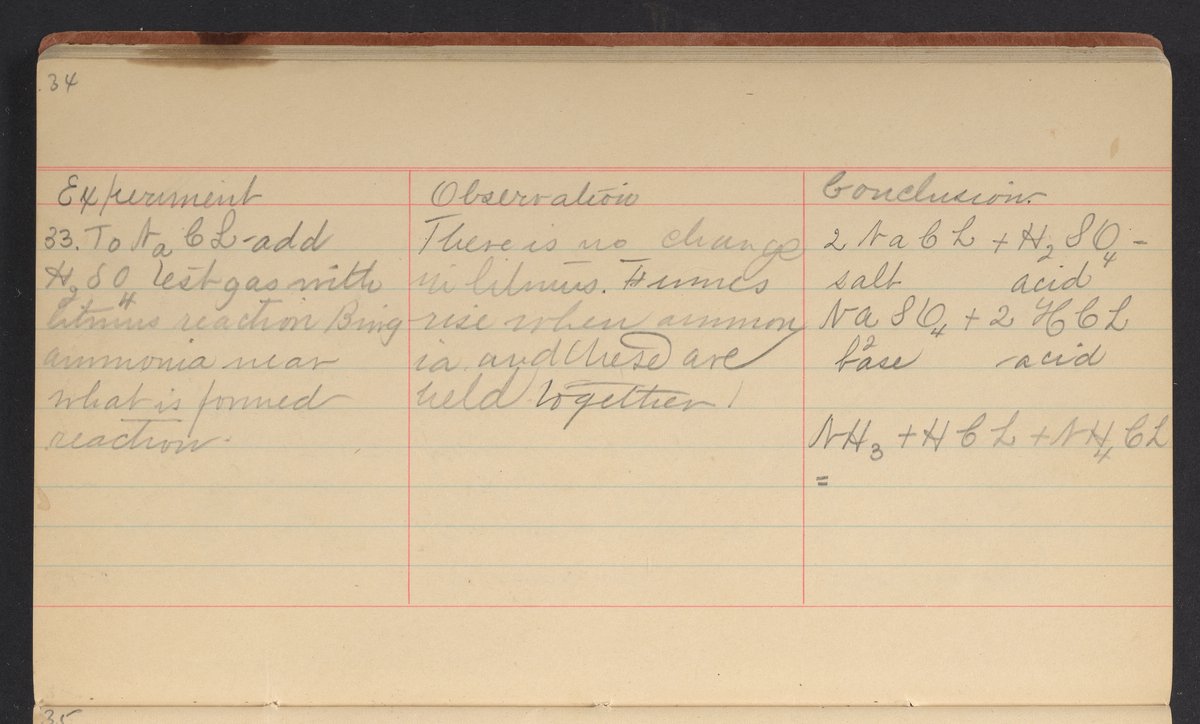 34
Experiment
33. To NaCL - add
H2SO4 Test gas with
litmus reaction Bring
ammonia near
what is formed
reaction.
Observation
There is no change
in litmus. Fumes
rise when ammon
ia and these are
held together!
Conclusion.
2 NaCL + H2SO4 -
salt acid
Na2SO4 + 2 HCL
base acid
NH3 + HCL + NH4CL
=
35